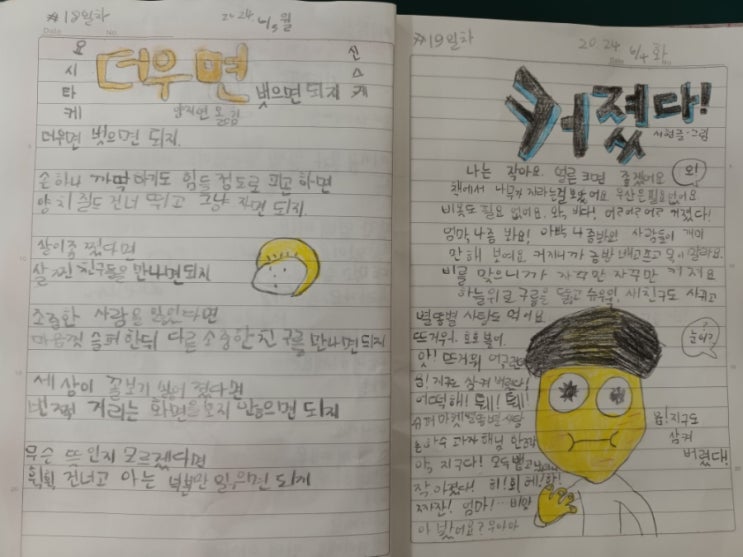 #18일차
2024 4/3 월
Date No.
요시타케
신스케
더우면
벗으면 되지
양지연 옮김
더우면 벗으면 되지.
손 하나 까딱하기도 힘들 정도로 피곤하면
양치질도 건너 뛰고 그냥 자면 되지.
살이좀 쪘다면
살 찐 친구들을 만나면되지
소중한 사람을 잃었다면
마음껏 슬퍼한뒤 다른 소중한친구를 만나면되지
세상이 꼴보기 싫어 졌다면
번쩍 거리는 화면을보지 않으면 되지
무슨 뜻인지 모르겠다면
휙휙 건너고 아는 부분만 읽으면 되지
#19일차
2024 6/4 화
Date No.
커졌다!
서현 글·그림
나는 작아요. 얼른 크면 좋겠어요
와!
책에서 나무가 자라는걸 봤어요 우산은필요없어요
비옷도 필요 없어요. 와, 비다! 어어어어어 커졌다!
엄마 나좀 봐요! 아빠 나좀봐요! 사람들이 개미
만 해 보여요 커지니까 금방 배고프고 목이말라요.
비를 맞으니까 자꾸만 자꾸만 커져요
하늘위로 구름을 뚫고 슈우웅, 새친구도 사귀고
별똥별 사탕도 먹어요
뜨거워,
앗! 뜨거워
눈이?
어떡해!
슈퍼마켓 별똥별 사탕
지구도
삼켜
버렸다!
지구다!
작아졌다!
짜잔! 엄마!
아 봤어요? 우아아